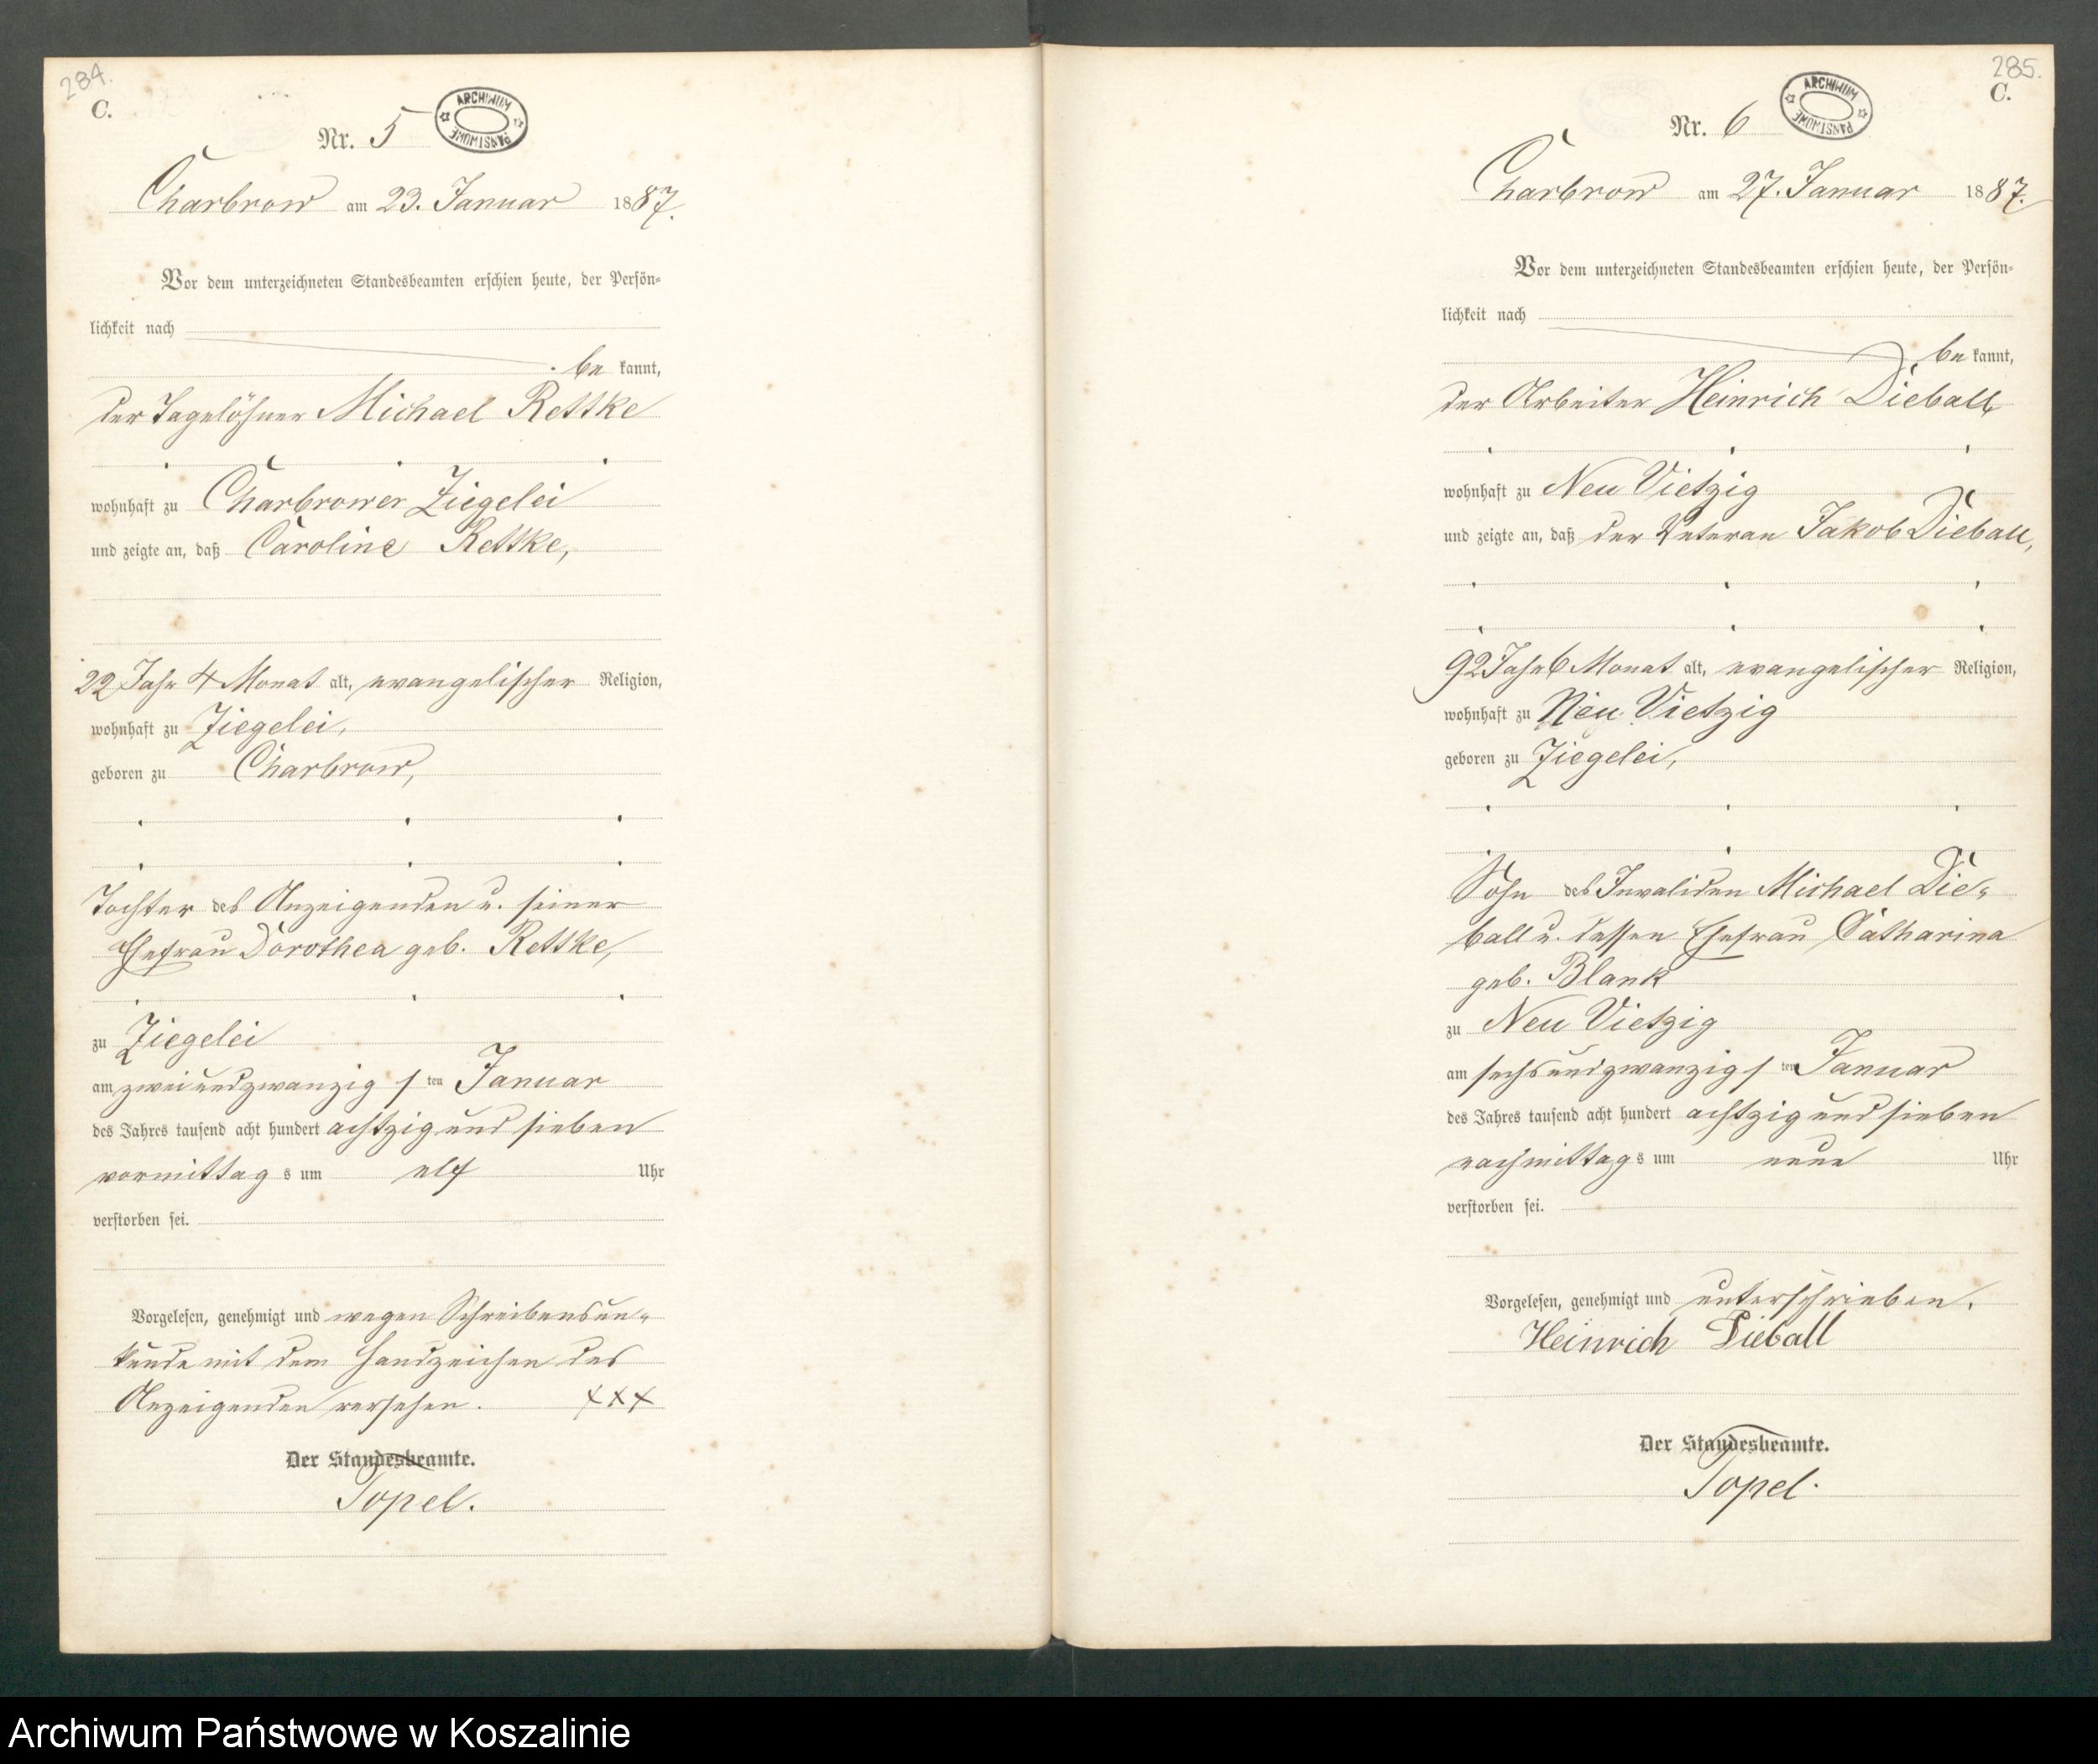 284.
C.
Nr. 5
ARCHIWUM PAŃSTWOWE
Charbrow am 23. Januar 1887.
Vor dem unterzeichneten Standesbeamten erschien heute, der Persön=
lichkeit nach
be kannt,
der Tagelöhner Michael Rettke
wohnhaft zu Charbrower Ziegelei
und zeigte an, daß Caroline Rettke,
22 Jahr 4 Monat alt, evangelischer Religion,
wohnhaft zu Ziegelei,
geboren zu Charbrow,
Tochter des Anzeigenden u. seiner
Ehefrau Dorothea geb. Rettke,
zu Ziegelei
am zweiundzwanzig s ten Januar
des Jahres tausend acht hundert achtzig und sieben
vormittag s um elf Uhr
verstorben sei.
Vorgelesen, genehmigt und wegen Schreibensun-
kunde mit dem Handzeichen des
Anzeigenden versehen. +++
Der Standesbeamte.
Topel.
285.
C.
Nr. 6
ARCHIWUM PAŃSTWOWE
Charbrow am 27. Januar 1887.
Vor dem unterzeichneten Standesbeamten erschien heute, der Persön=
lichkeit nach
be kannt,
der Arbeiter Heinrich Dieball,
wohnhaft zu Neu Vietzig
und zeigte an, daß der Veteran Jakob Dieball,
92 Jahr 6 Monat alt, evangelischer Religion,
wohnhaft zu Neu Vietzig
geboren zu Ziegelei,
Sohn des Invaliden Michael Die-
ball u. dessen Ehefrau Catharina
geb. Blank
zu Neu Vietzig
am sechsundzwanzig s ten Januar
des Jahres tausend acht hundert achtzig und sieben
nachmittag s um neun Uhr
verstorben sei.
Vorgelesen, genehmigt und unterschrieben.
Heinrich Dieball
Der Standesbeamte.
Topel.
Archiwum Państwowe w Koszalinie